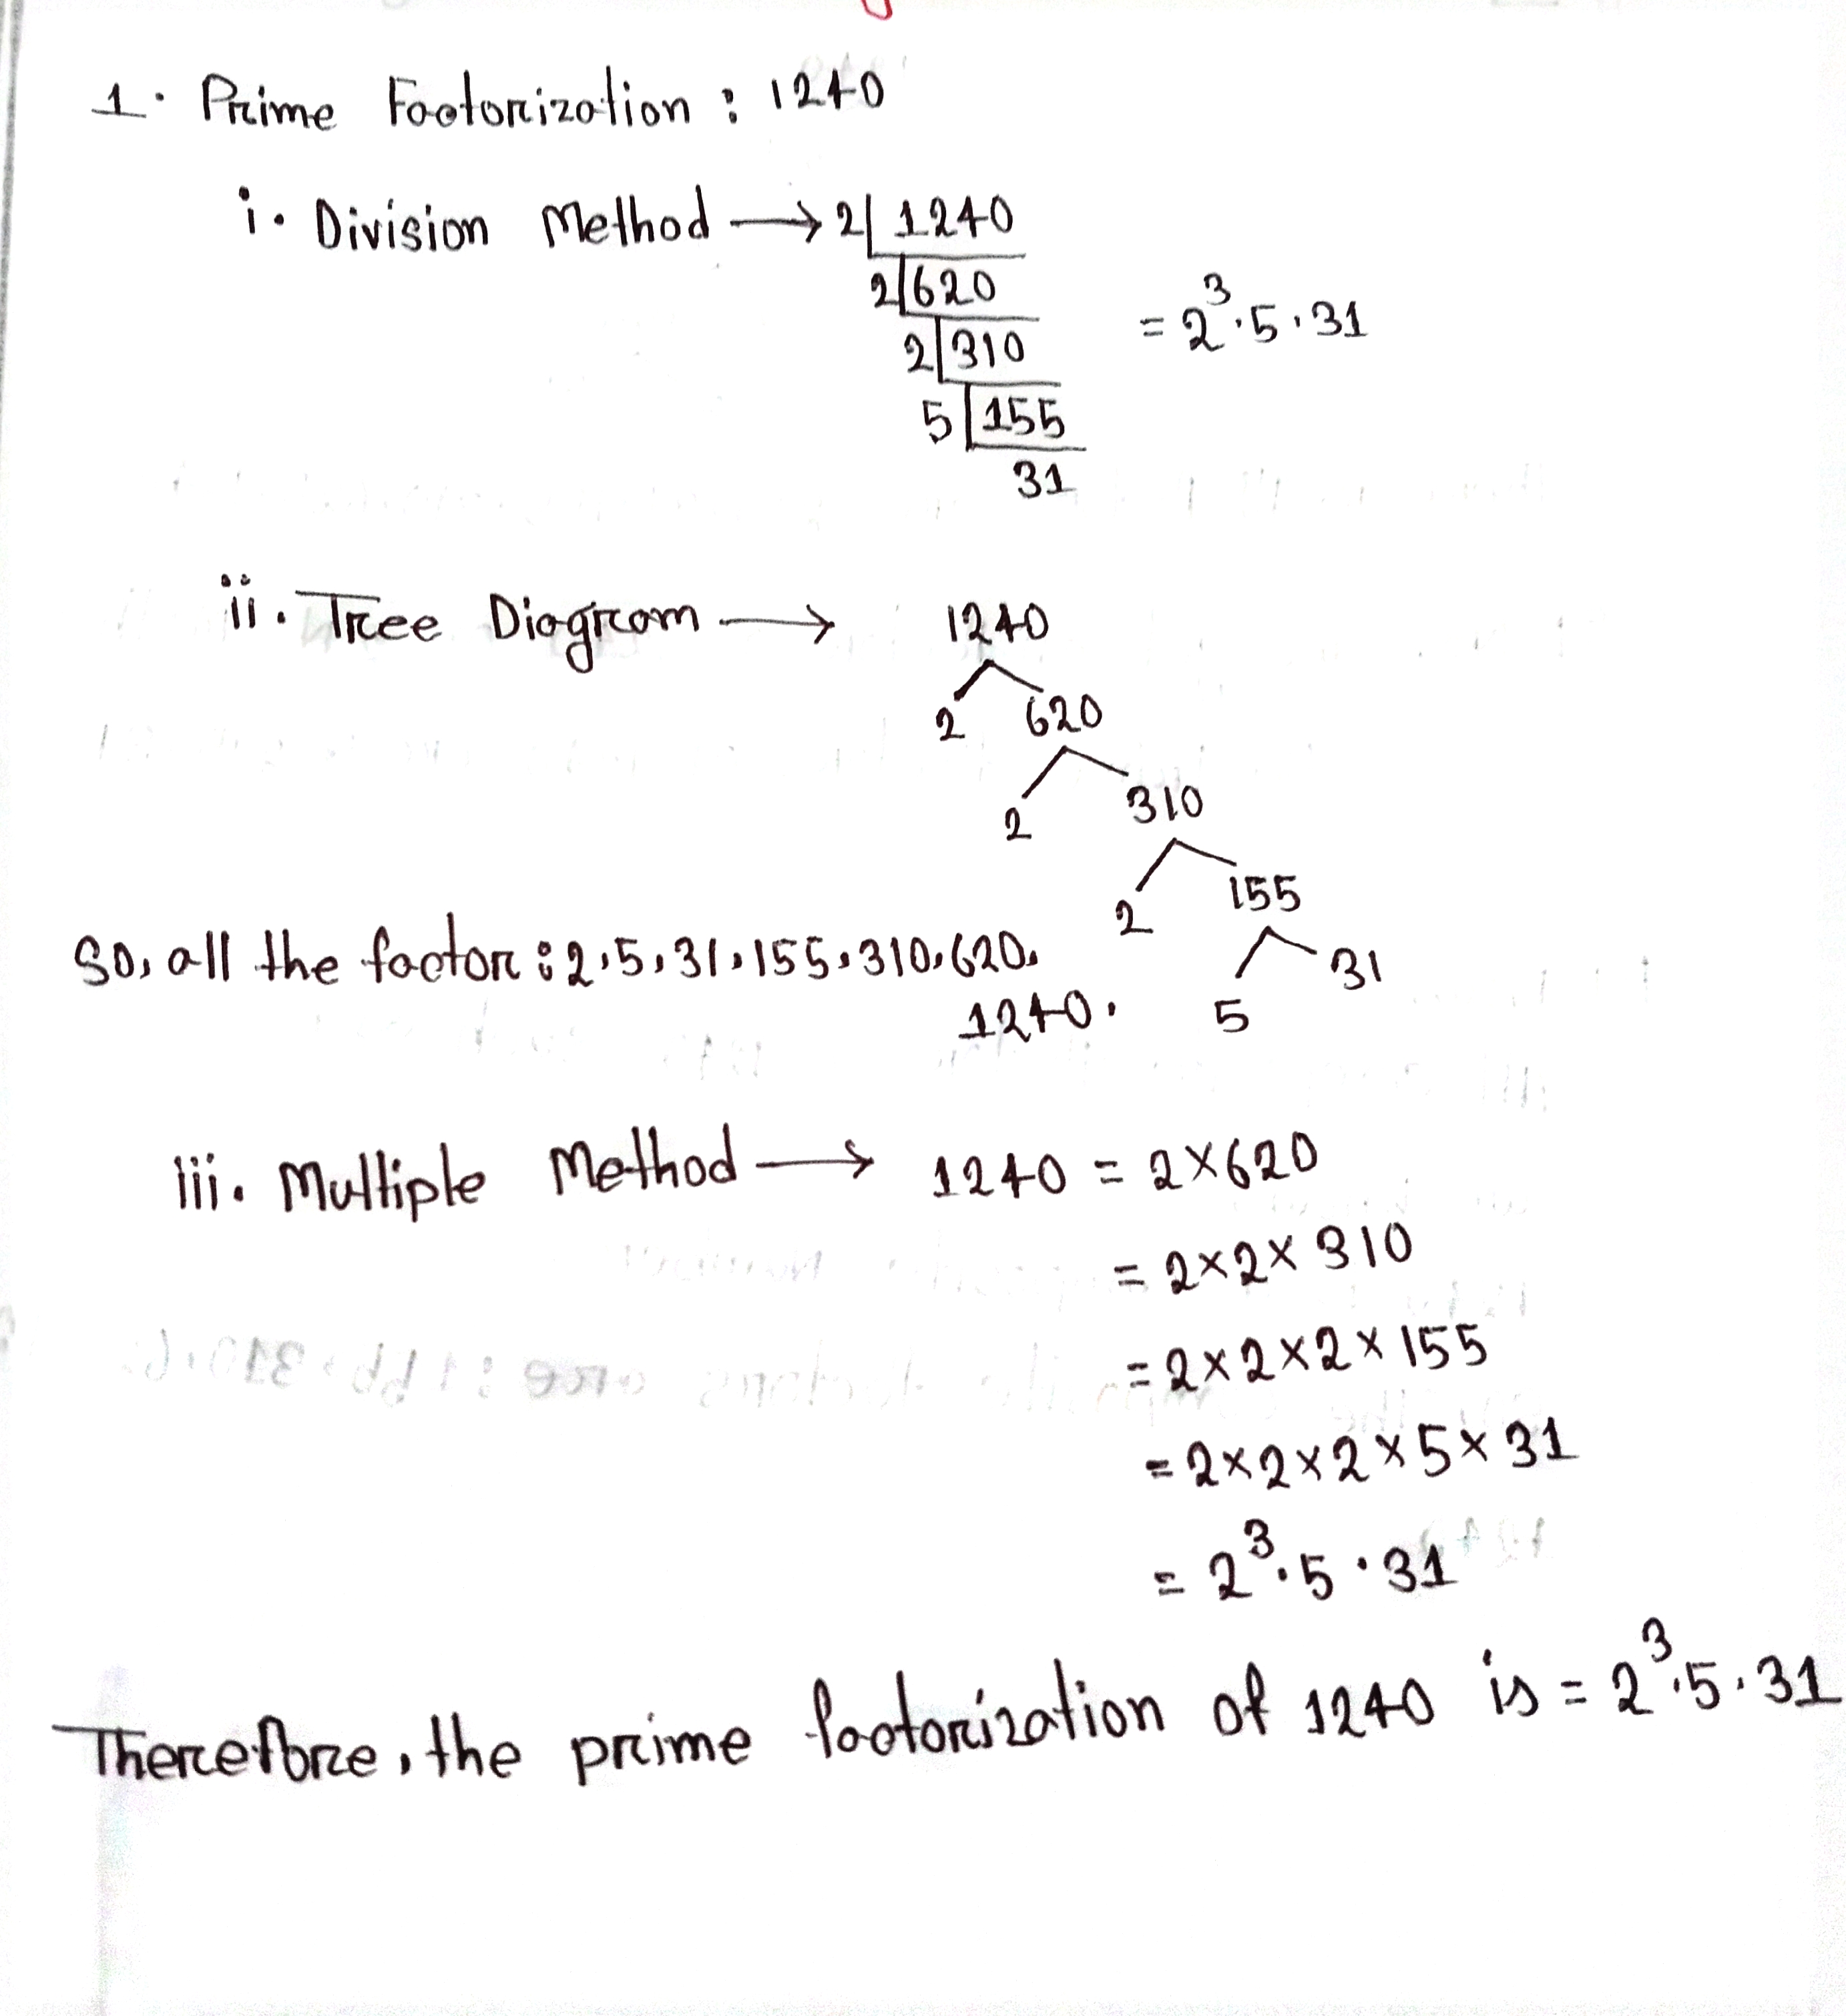 1. Prime Factorization : 1240
i. Division Method → 2| 1240
2|620
= 2³.5.31
2|310
5|155
31
ii. Tree Diagram → 1240
2 620
2 310
2 155
So, all the factor : 2,5,31,155,310,620,
5 31
1240.
iii. Multiple Method → 1240 = 2×620
= 2×2×310
= 2×2×2×155
= 2×2×2×5×31
= 2³.5.31
Therefore, the prime factorization of 1240 is = 2³.5.31